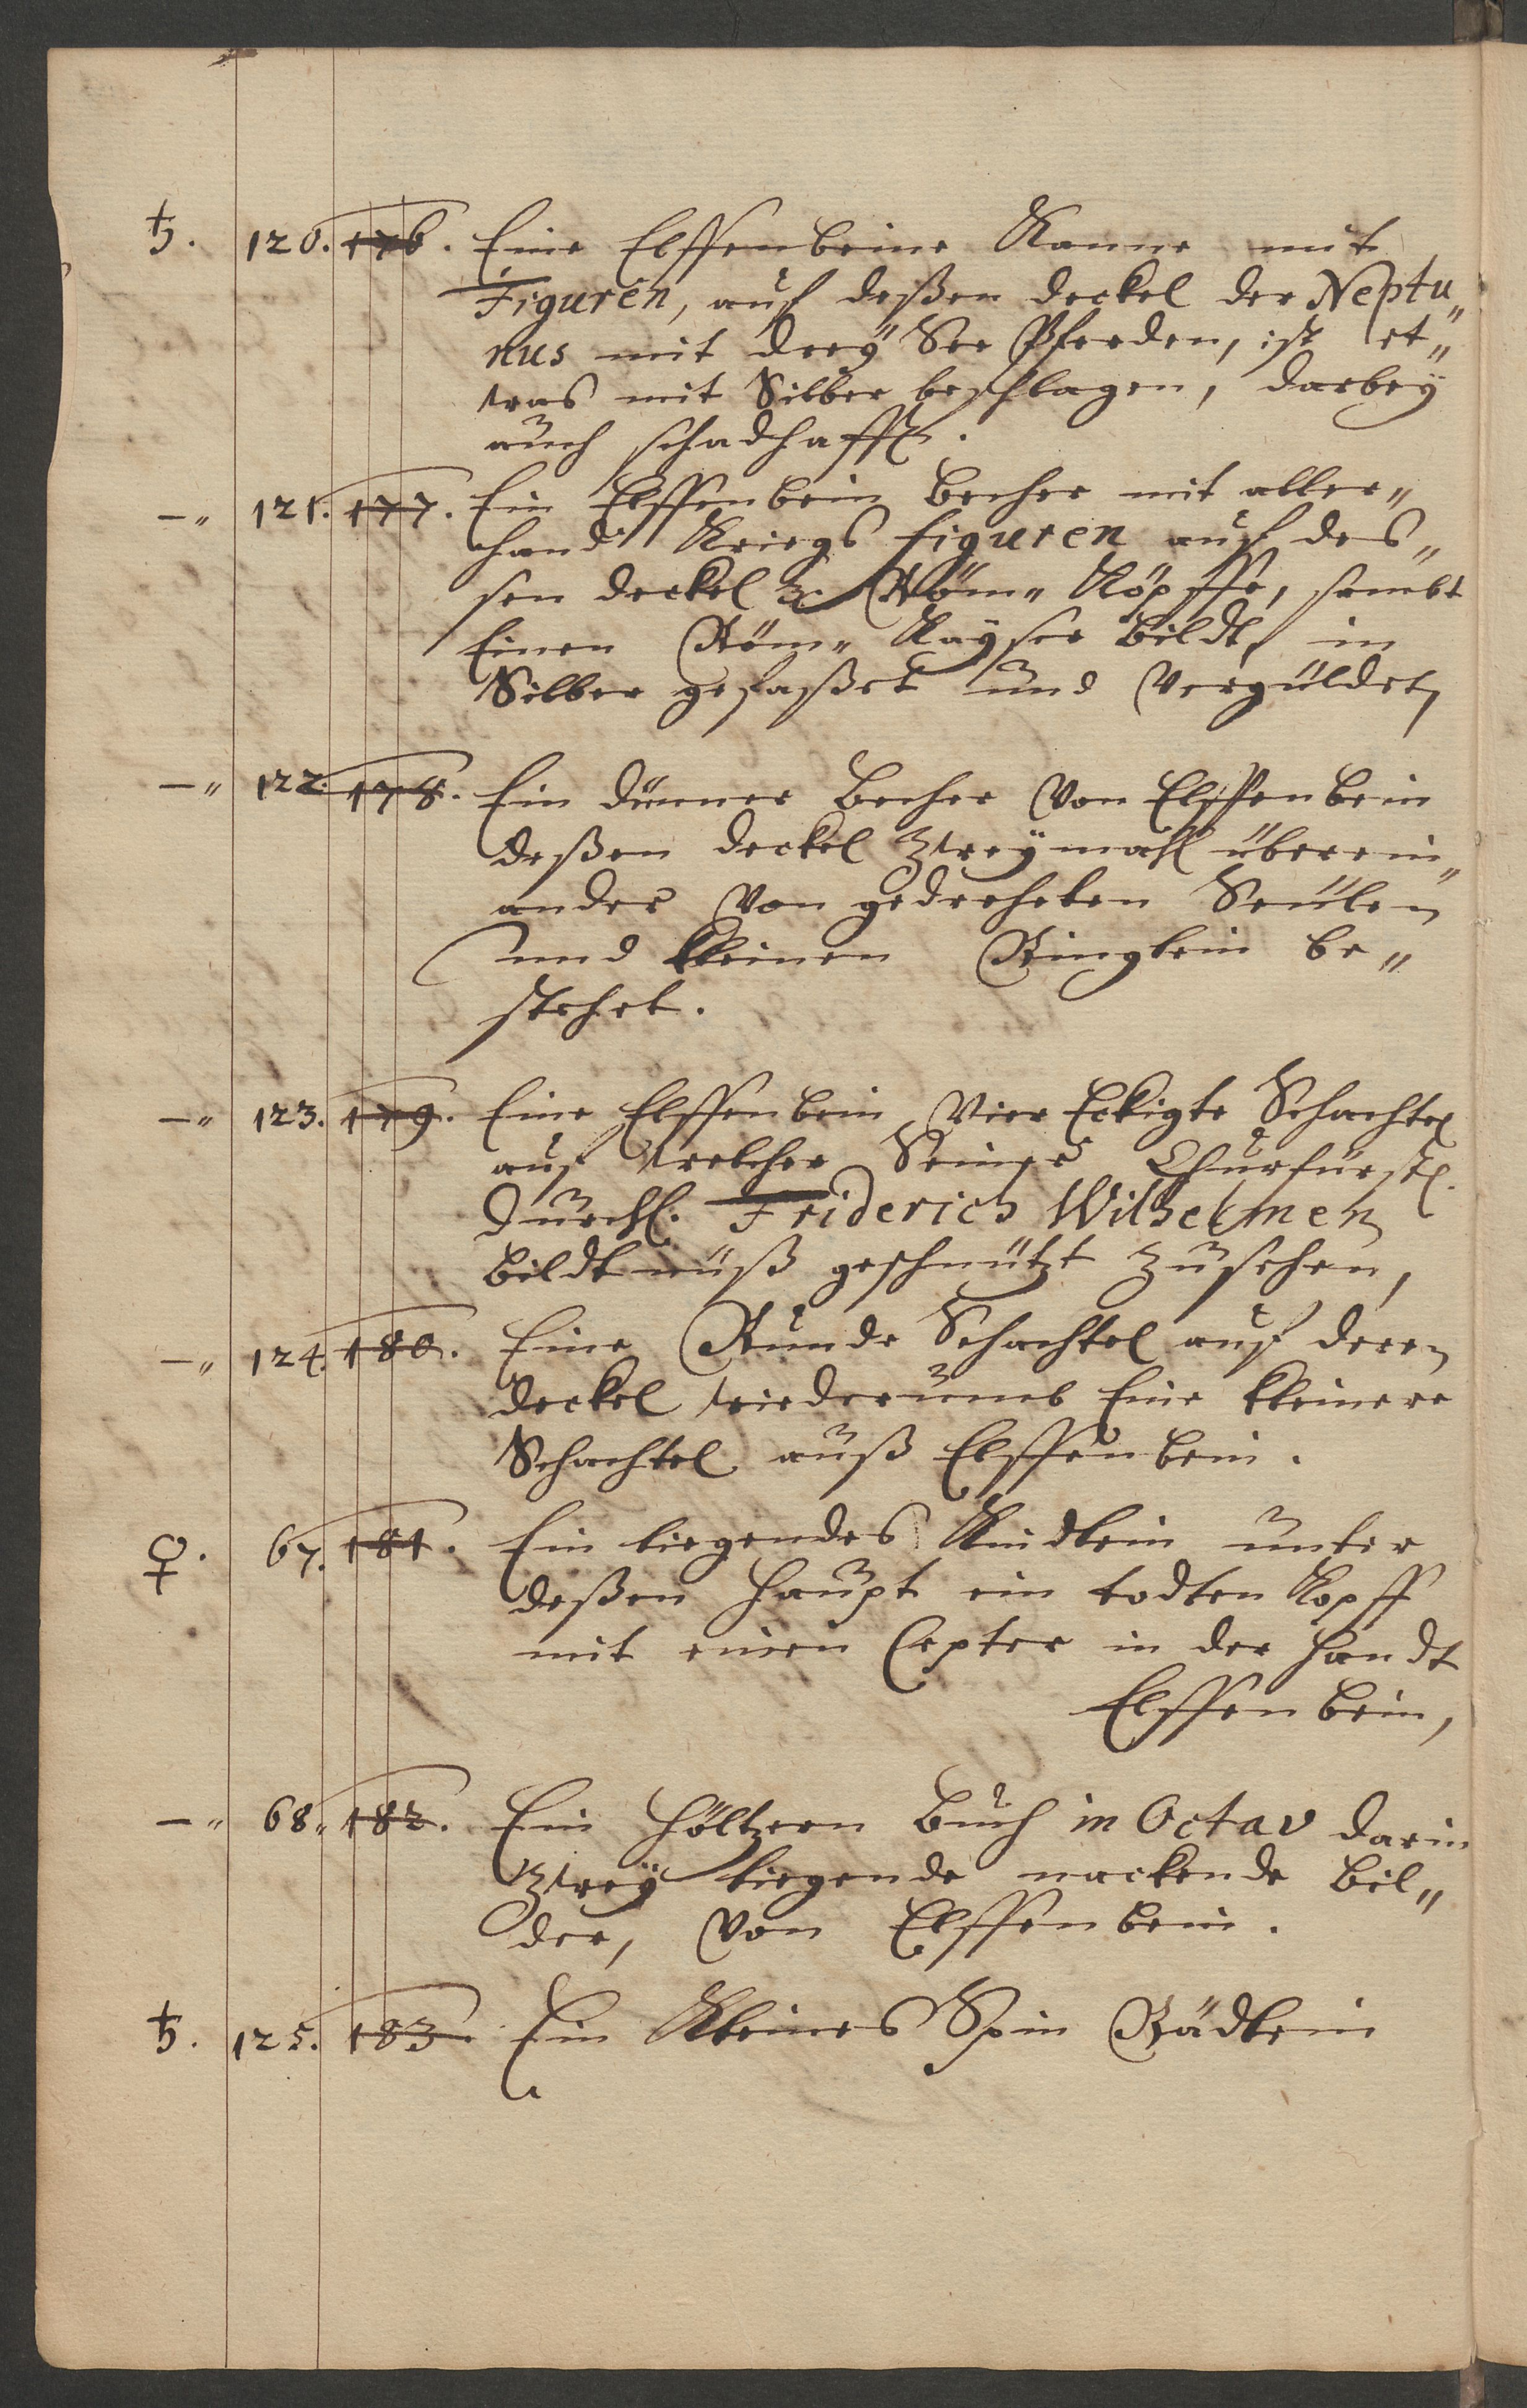 ♄. 120. 176. Eine Elffenbeine Kanne mit
Figuren, auf deßen deckel der Neptu„
nus mit dreÿ See Pferden, ist et„
was mit Silber beschlagen, darbeÿ
auch schadhafft.
–„ 121. 177. Ein Elffenbein Becher mit aller„
hand Kriegs figuren auf des„
sen deckel Röm„ Köpffe, sambt
Einen Röm„ Kaÿser Bildt, in
Silber gefaßet und Vergüldet,
–„ 122. 178. Ein dünner Becher Von Elffenbein
deßen deckel Zweÿmahl überein„
ander Von gedreheten Seülen
und kleinen Ringlein be„
stehet.
–„ 123. 179. Eine Elffenbein Vier Eckigte Schachtel
auf welcher Seiner Churfürstl.
Durchl. Friderich Wilhelmen
Bildtnüß geschnützt zusehen,
–„ 124. 180. Eine Runde Schachtel auf deren
deckel wiederumb Eine kleinere
Schachtel auß Elffenbein.
♀. 67. 181. Ein liegendes Kindlein unter
deßen Haupt ein todten Kopff
mit einen Cepter in der Handt
Elffenbein,
–„ 68. 182. Ein Höltzern Buch in Octav darin
Zweÿ liegende nackende Bil„
der, Von Elffenbein.
♄. 125. 183. Ein Kleines Spin Rädlein